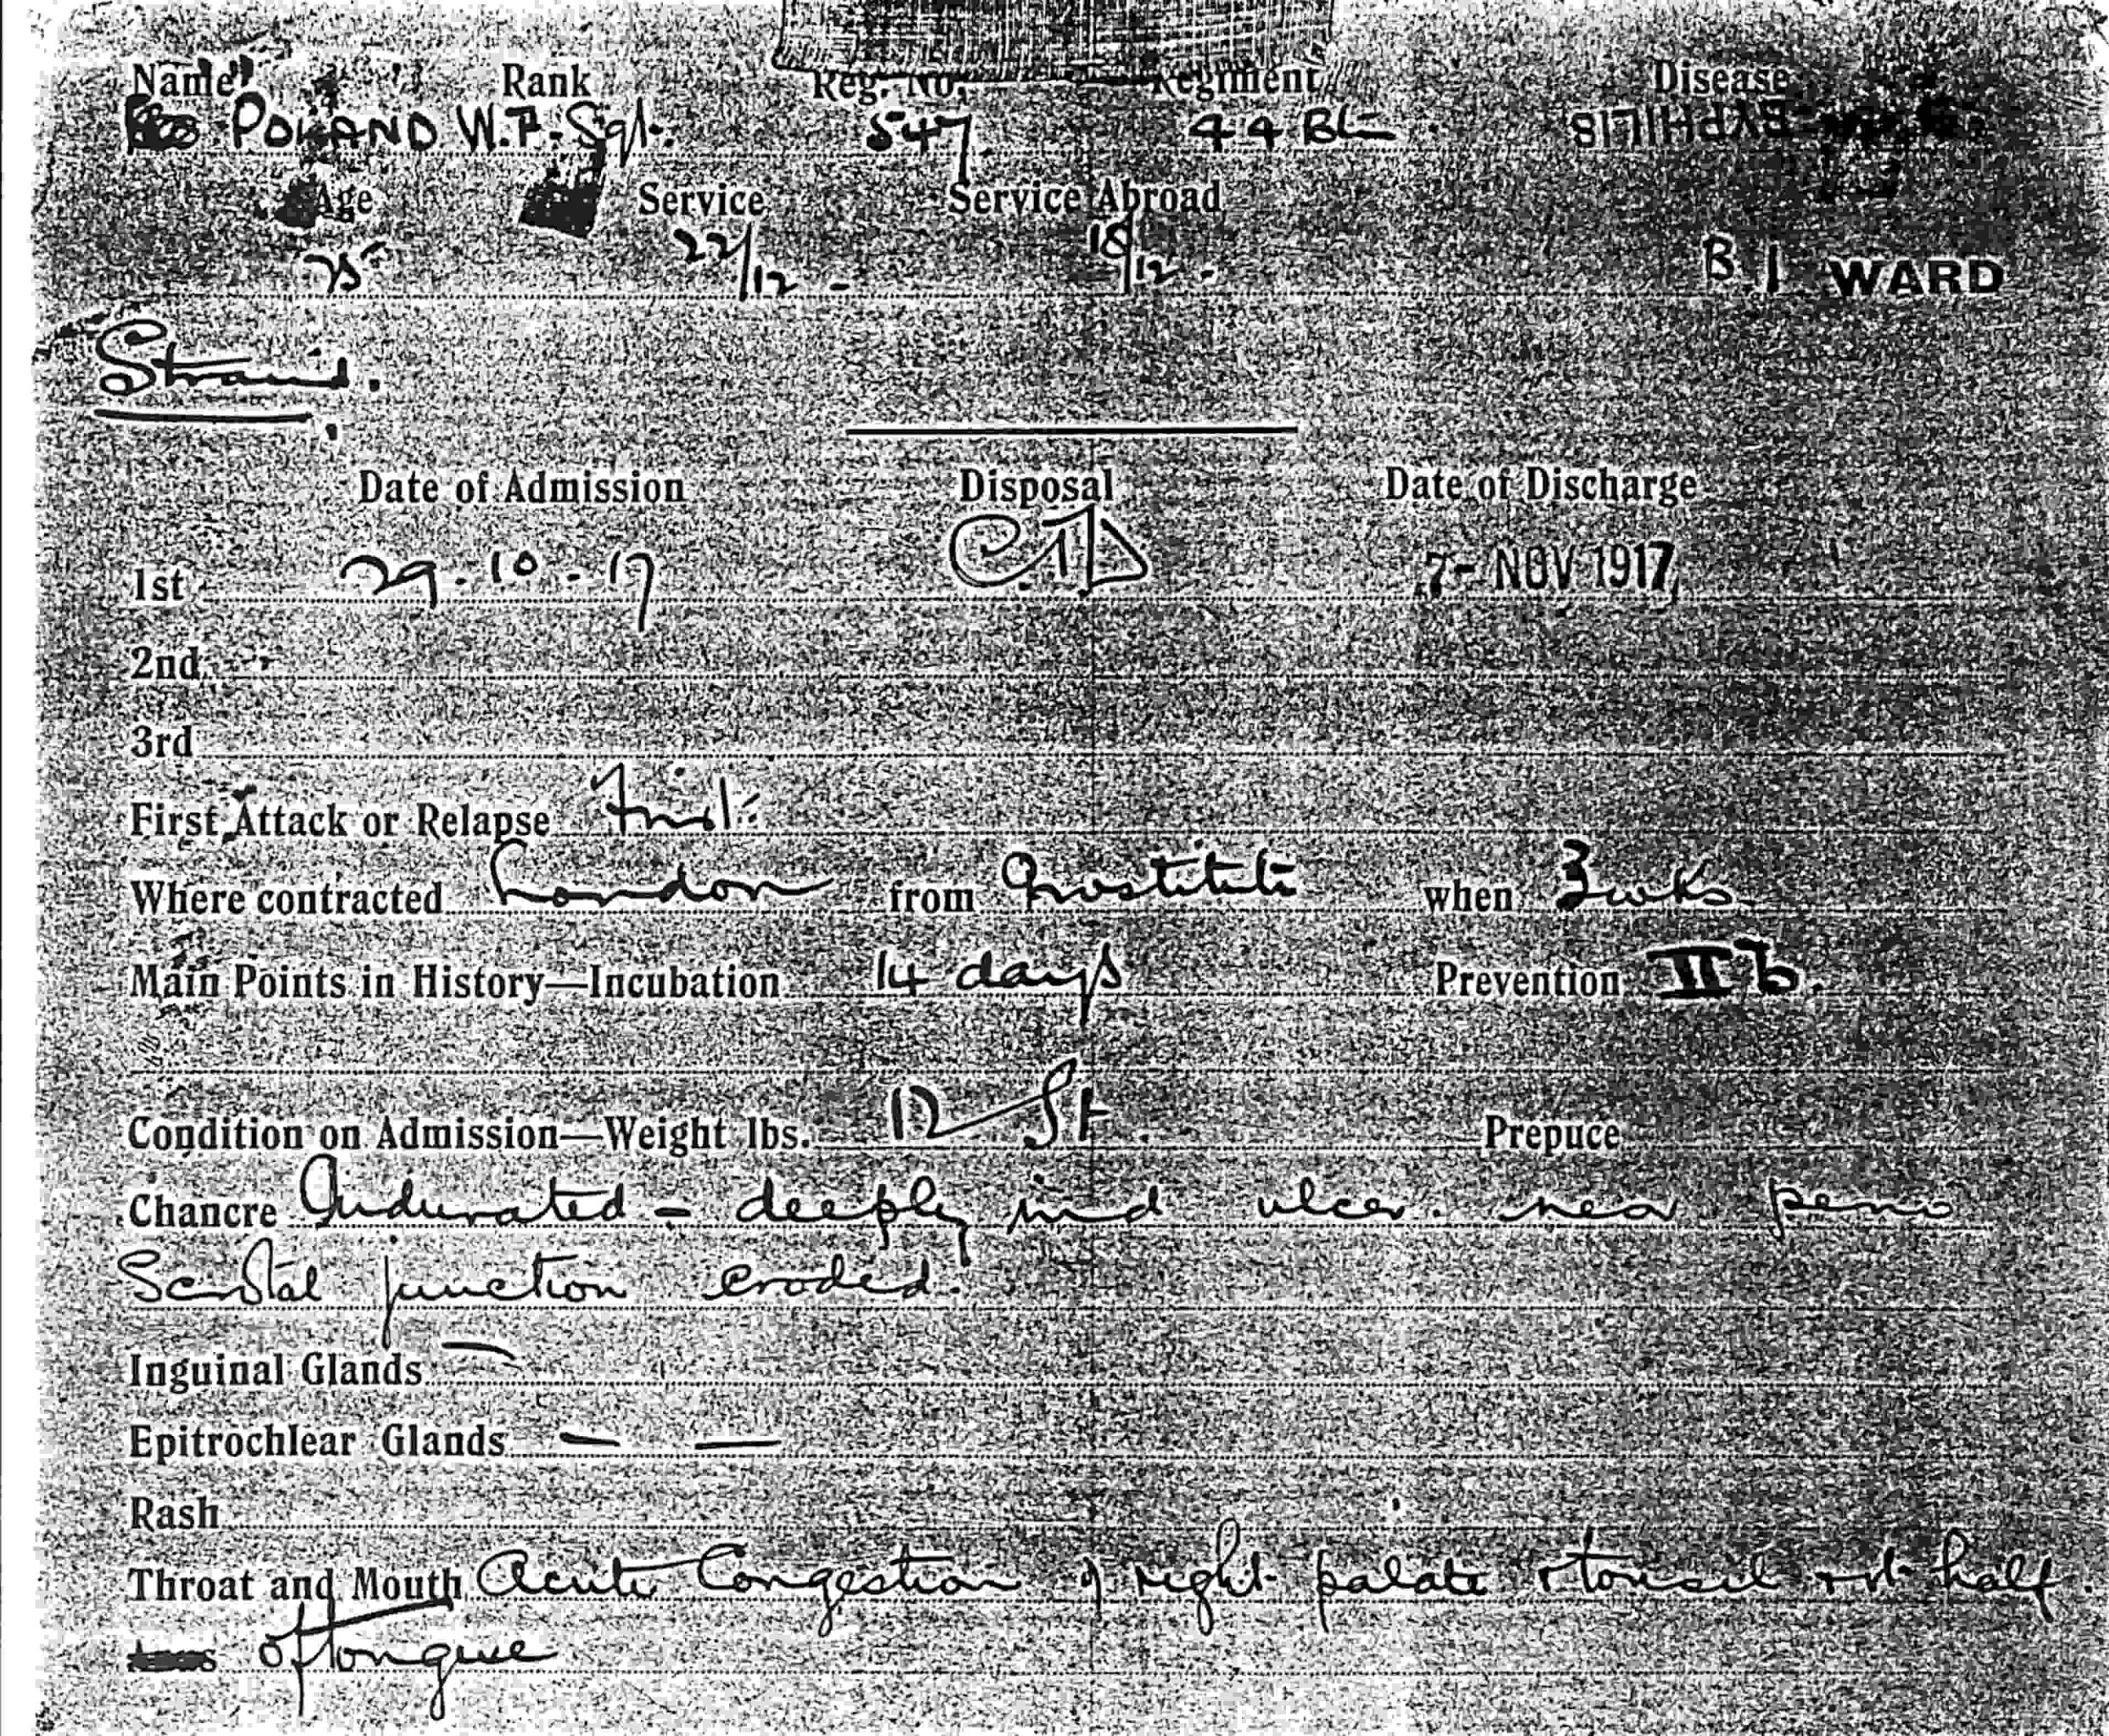 Name Rank Reg. No. Regiment Disease
POLAND W.F. Sgt. 547. 44 Bn SYPHILIS
Age Service Service Abroad
25 22/12 - 18/12 - B 1 WARD
Strand.
Date of Admission Disposal Date of Discharge
1st 29.10.17 CTD 7- NOV 1917
2nd
3rd
First Attack or Relapse First
Where contracted London from Prostitute when 3 wks
Main Points in History—Incubation 14 days Prevention II b.
Condition on Admission—Weight lbs. 12 St. Prepuce
Chancre Indurated - deeply ind ulcer. near peno
Scrotal junction eroded.
Inguinal Glands —
Epitrochlear Glands — —
Rash
Throat and Mouth Acute Congestion of right palate & tonsil & rt half
of tongue